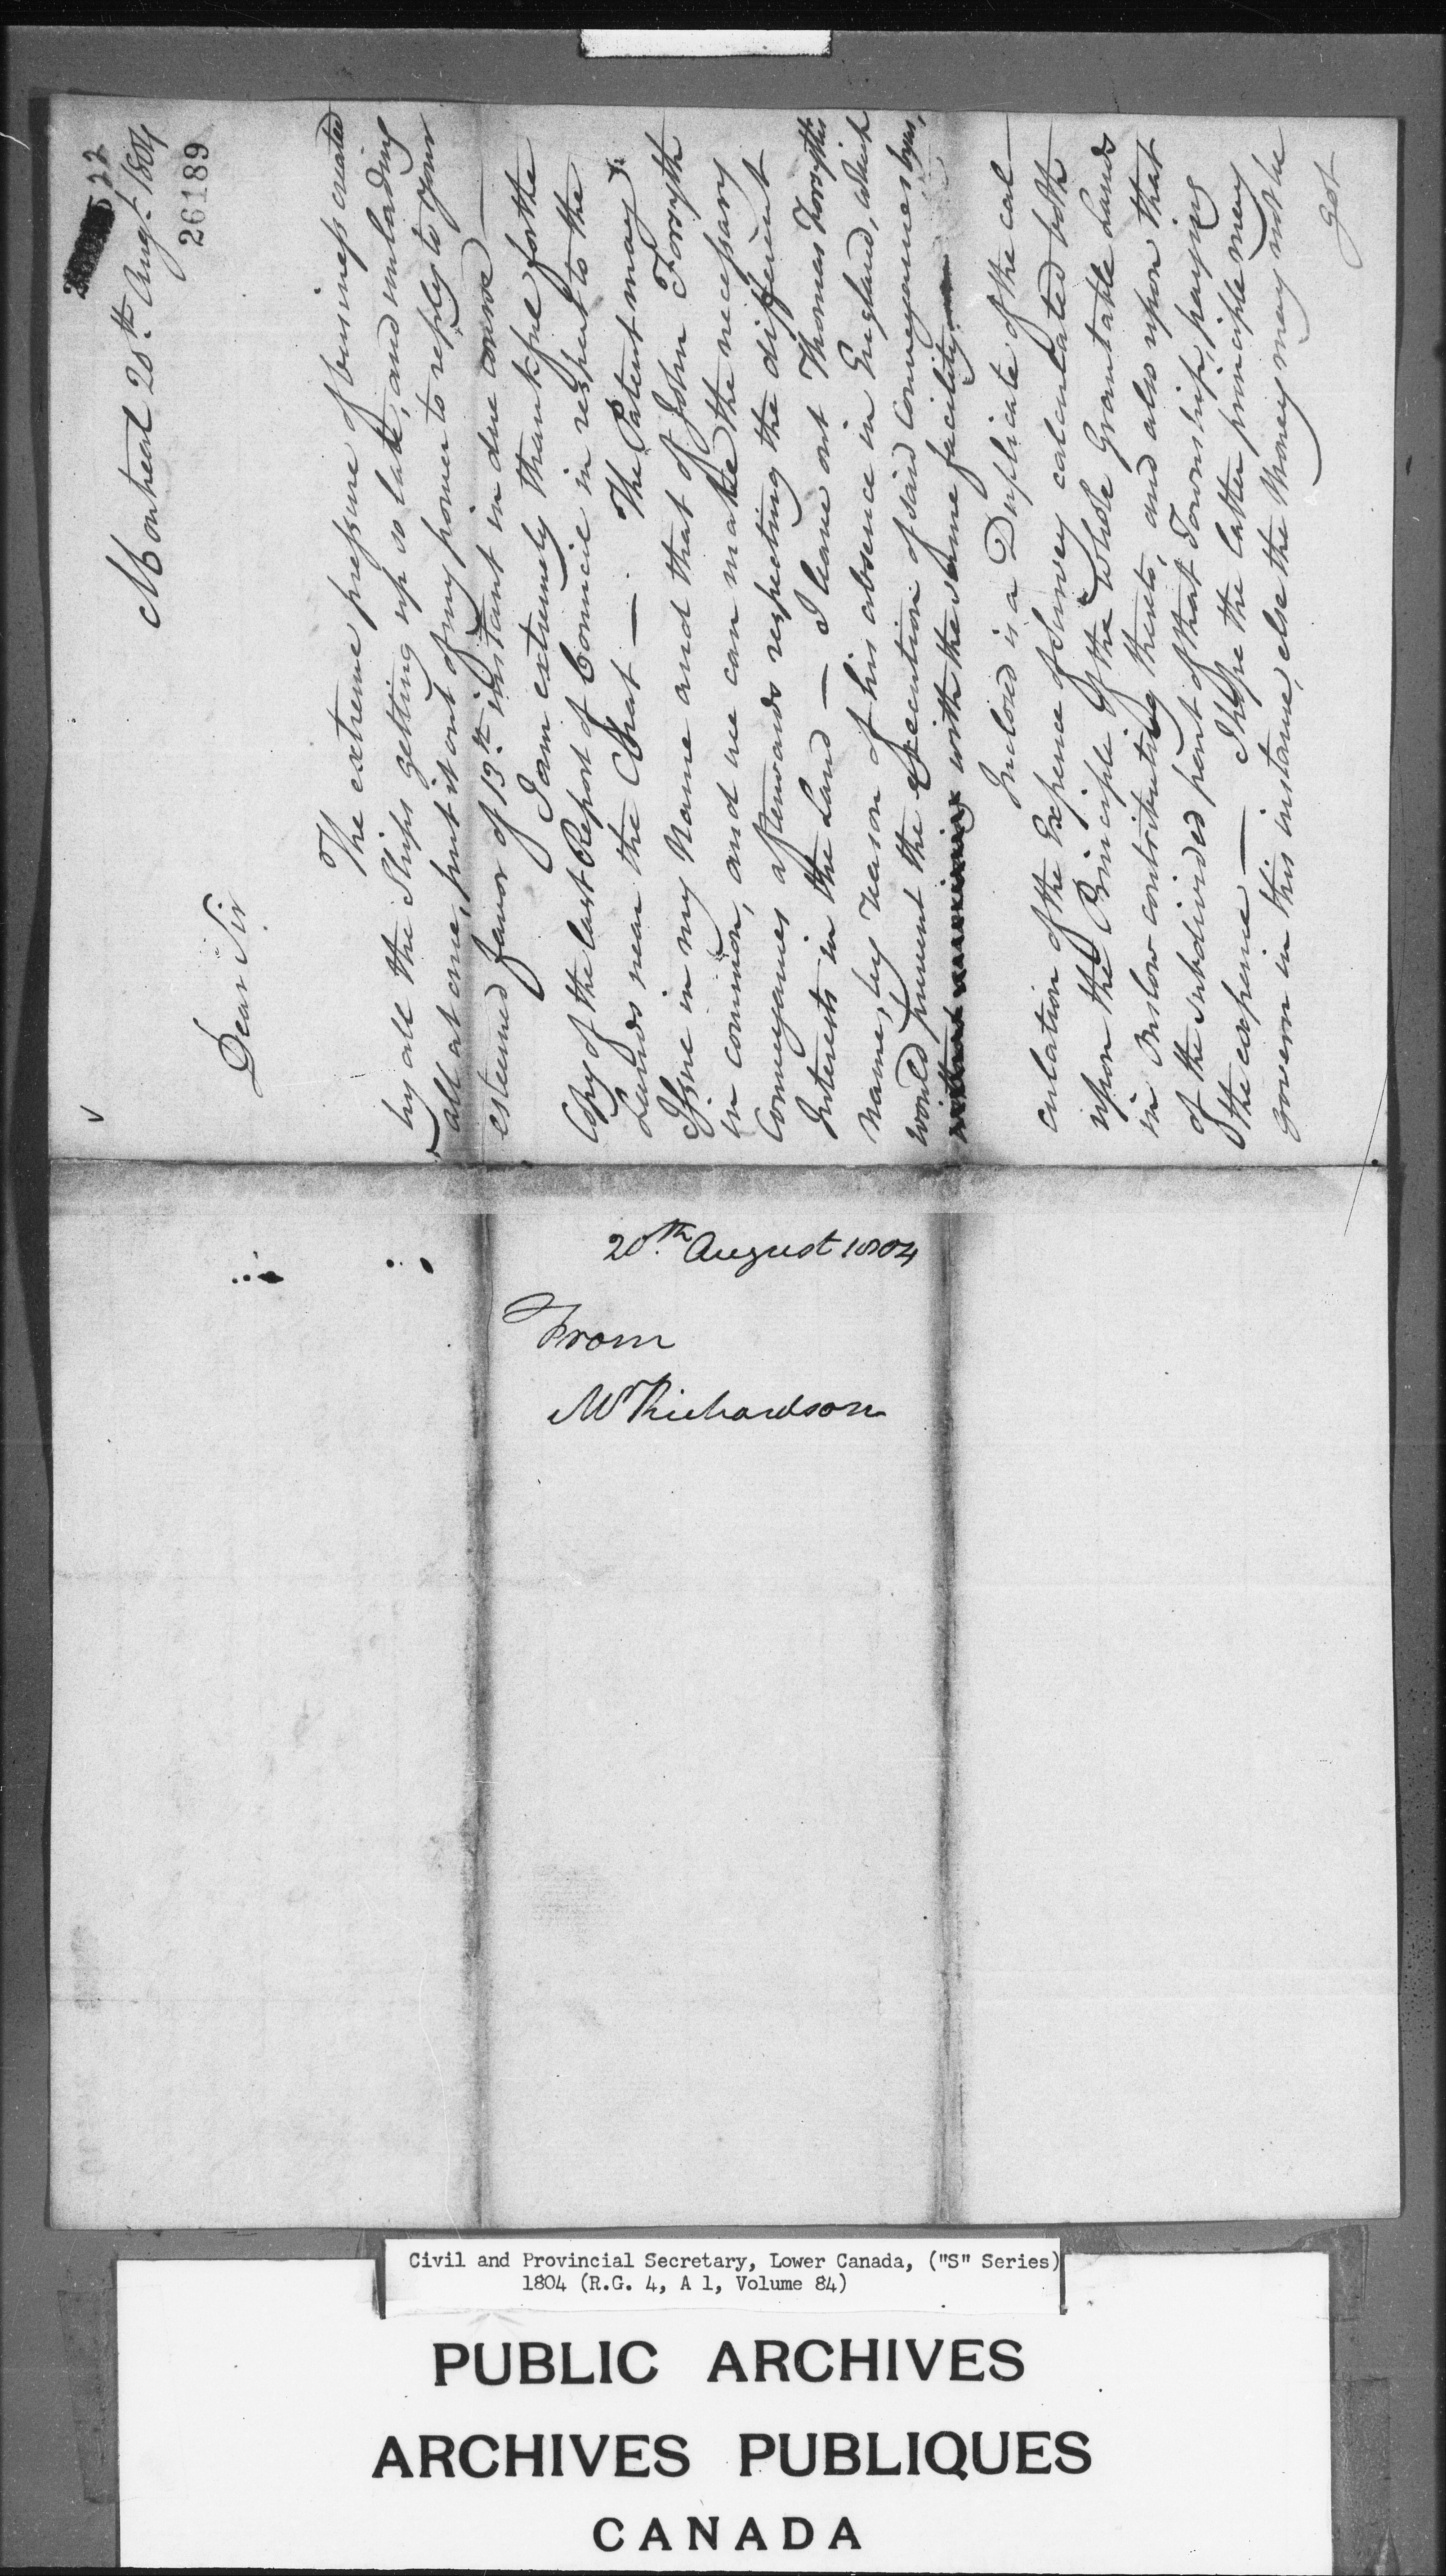 522
Montreal 20th. Augt. 1804
26189
Dear Sir
The extreme pressure of business created
by all the Ships getting up so late, and unloading
all at once, put it out of my power to reply to your
esteemed favor of 13th. instant in due course —
I am extremely thankful for the
Copy of the last Report of Council in respect to the
Lands near the Chat — The Patent may
Issue in my Name and that of John Forsyth
in common, and we can make the necessary
Conveyances afterwards respecting the different
Interests in the Land — I leave out Thomas Forsyth's
name, by reason of his absence in England, which
would prevent the execution of said conveyances
with the same facility —
Inclosed is a Duplicate of the cal-
culation of the Expence of Survey calculated both
upon the Principle of the whole Grantable Lands
in Onslow contributing thereto, and also upon that
of the subdivided part of that Township, paying
the expence — I hope the latter principle may
govern in this instance, else the Money may not be
got
20th. August 1804
From
Mr Richardson
Civil and Provincial Secretary, Lower Canada, ("S" Series)
1804 (R.G. 4, A 1, Volume 84)
PUBLIC ARCHIVES
ARCHIVES PUBLIQUES
CANADA